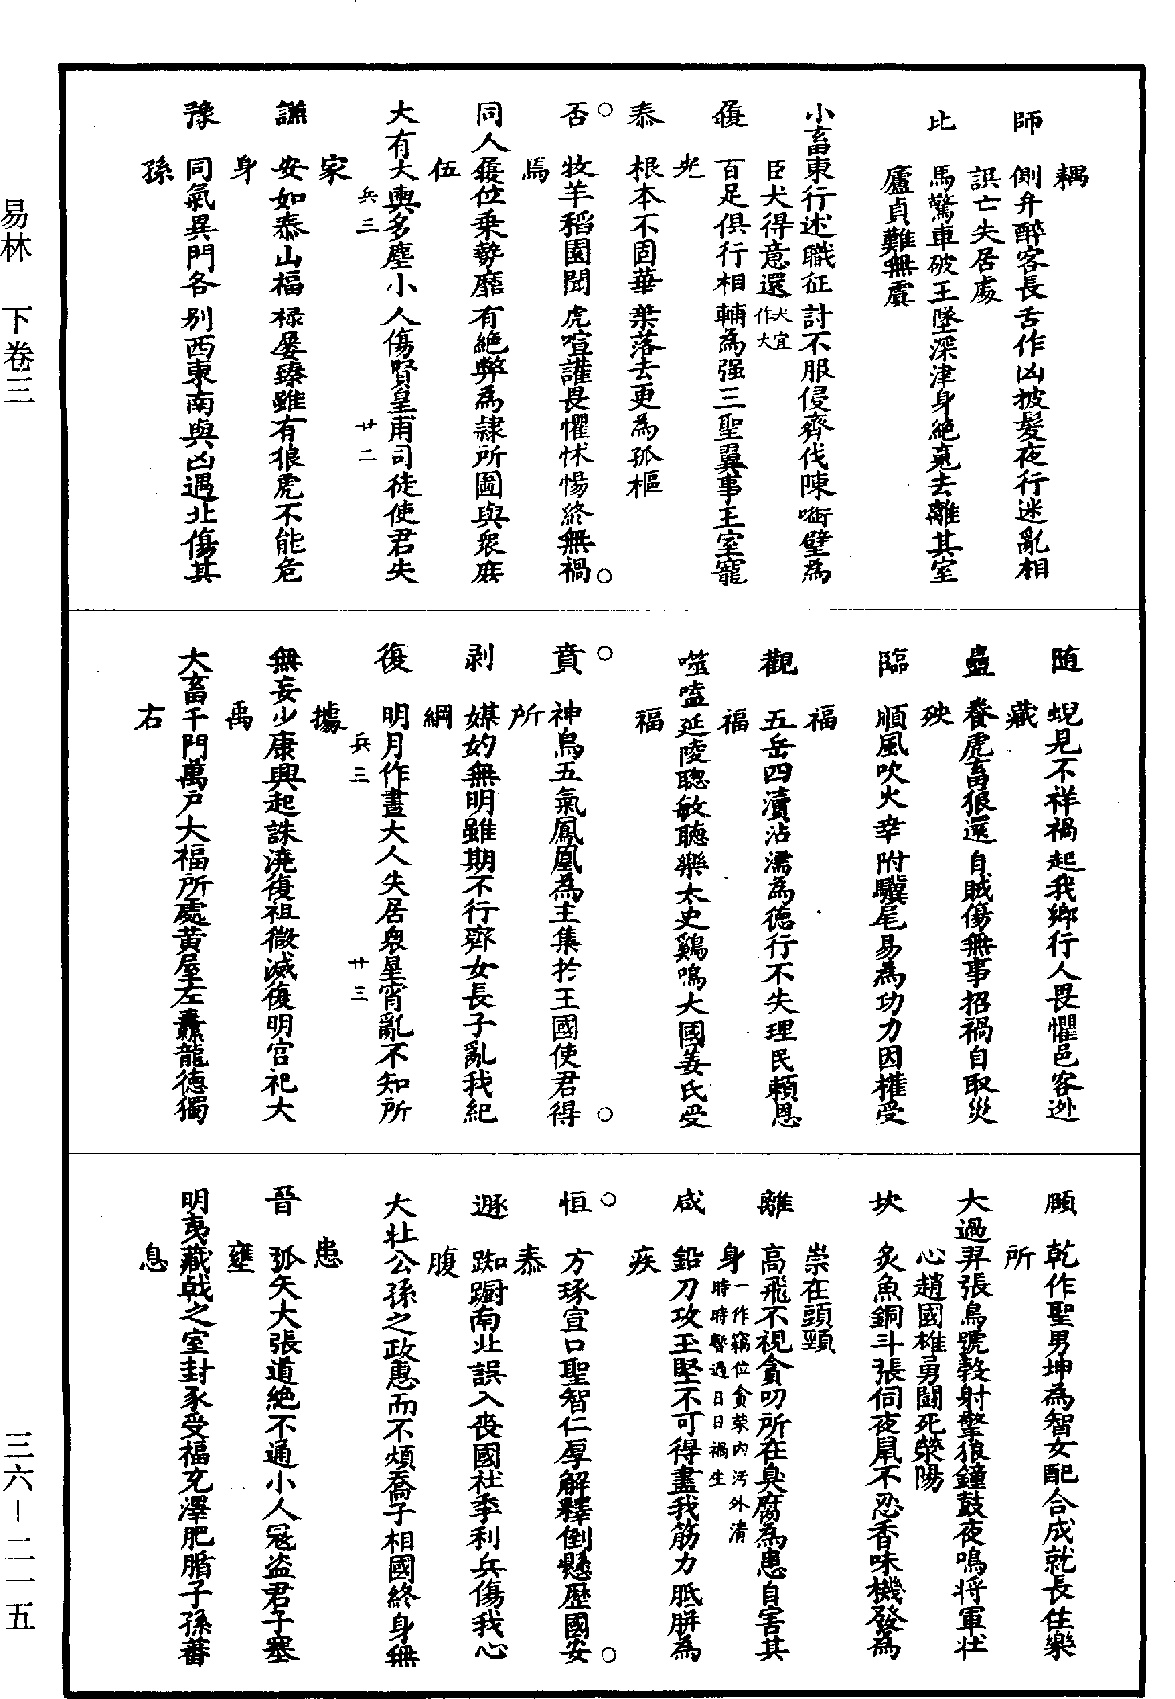 耦
師　側弁醉客長舌作凶披髮夜行迷亂相
誤亡失居處
比　馬驚車破王墜深津身絶䰟去離其室
廬貞難無虞
小畜東行述職征討不服侵齊伐陳啣璧為
臣犬得意還犬宜作大
履　百足俱行相輔為强三聖翼事王室寵
光
泰　根本不固華葉落去更為孤樞
○否　牧羊稻園聞虎喧讙畏懼怵惕終無禍○
焉
同人䘮位乗勢靡有絶弊為隷所圖與衆庶
伍
大有大輿多塵小人傷賢皇甫司徒使君失
兵三　廿二
家
謙　安如泰山福禄屢臻雖有狼虎不能危
身
豫　同氣異門各别西東南與凶遇北傷其
孫
随　蜺見不祥禍起我鄉行人畏懼邑客逊
藏
蠱　養虎畜狼還自賊傷無事招禍自取災
殃
臨　順風吹火牽附驥尾易為功力因權受
福
觀　五岳四瀆沾濡為徳行不失理民賴恩
福
噬嗑延陵聰敏聽樂太史鷄鳴大國姜氏受
福
○賁　神鳥五氣鳳凰為主集於王國使君得○
所
剥　媒妁無明雖期不行齊女長子亂我紀
綱
復　明月作晝大人失居衆星宵亂不知所
兵三　廿三
據
無妄少康興起誅澆復祖微滅復明宫祀大
禹
大畜千門萬户大福所處黄屋左纛龍徳獨
右
頤　乾作聖男坤為智女配合成就長住樂
所
大過羿張烏號彀射驚狼鐘鼓夜鳴将軍壮
心趙國雄勇鬬死滎陽
坎　炙魚銅斗張伺夜鼠不忍香味機發為
祟在頭頸
離　高飛不視貪叨所在臭腐為患自害其
身一作竊位貪榮内污外清時時暫過日日禍生
咸　鉛刀攻玉堅不可得盡我筋力胝胼為
疾
○恒　方琢宣口聖智仁厚解釋倒懸歴國安○
泰
遯　踟躕南北誤入喪國杜季利兵傷我心
腹
大壮公孫之政惠而不煩喬子相國終身無
患
晉　孤矢大張道絶不通小人冦盗君子塞
壅
明夷藏戟之室封豕受福充澤肥腯子孫蕃
息
易林　下卷三
三六－二一五